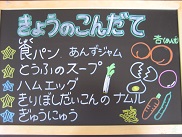 きょうのこんだて
☆食パン あんずジャム
☆とうふのスープ
☆ハムエッグ
☆きりぼしだいこんのナムル
☆ぎゅうにゅう